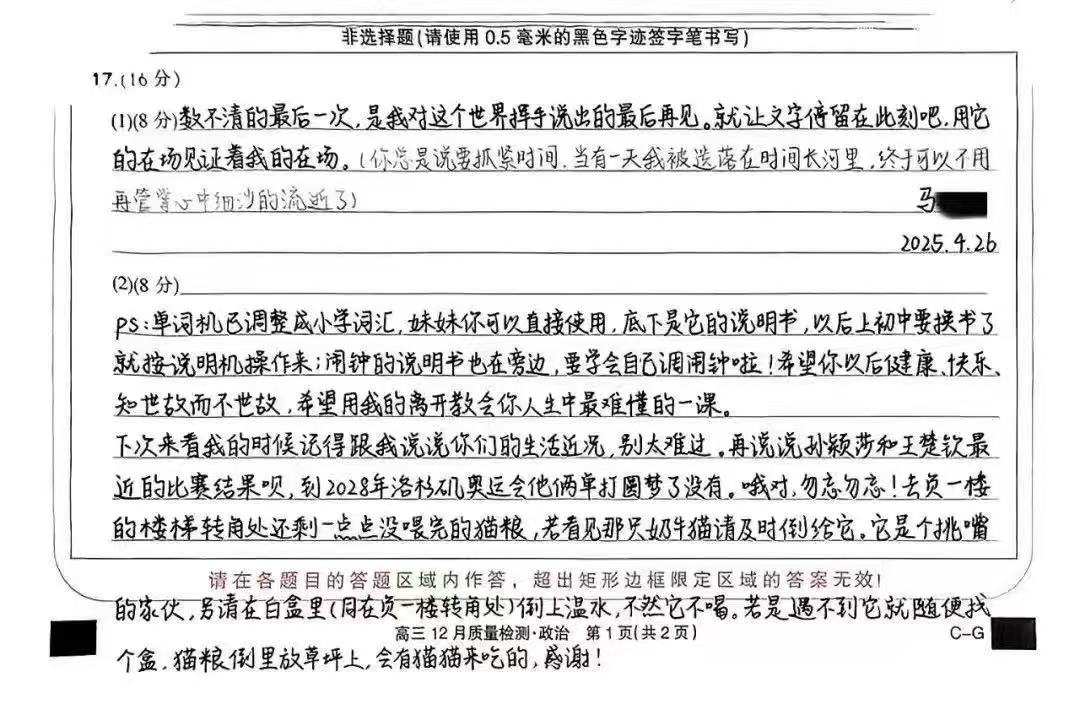 非选择题(请使用0.5毫米的黑色字迹签字笔书写)
17.(16分)
(1)(8分)数不清的最后一次，是我对这个世界挥手说出的最后再见。就让文字停留在此刻吧，用它
的在场见证着我的在场。(你总是说要抓紧时间，当有一天我被迭落在时间长河里，终于可以不用
再管掌心中细沙的流逝了)
马
2025.4.26
(2)(8分)
PS:单词机已调整成小学词汇，妹妹你可以直接使用，底下是它的说明书，以后上初中要换书了
就按说明机操作来；闹钟的说明书也在旁边，要学会自己调闹钟啦！希望你以后健康、快乐、
知世故而不世故，希望用我的离开教会你人生中最难懂的一课。
下次来看我的时候记得跟我说说你们的生活近况，别太难过。再说说孙颖莎和王楚钦最
近的比赛结果呗，到2028年洛杉矶奥运会他俩单打圆梦了没有。哦对，勿忘勿忘！去负一楼
的楼梯转角处还剩一点点没喂完的猫粮，若看见那只奶牛猫请及时倒给它。它是个挑嘴
请在各题目的答题区域内作答，超出矩形边框限定区域的答案无效!
的家伙，另请在白盒里(同在负一楼转角处)倒上温水，不然它不喝。若是遇不到它就随便找
高三12月质量检测·政治 第1页(共2页) C-G
个盒，猫粮倒里放草坪上，会有猫猫来吃的，感谢！